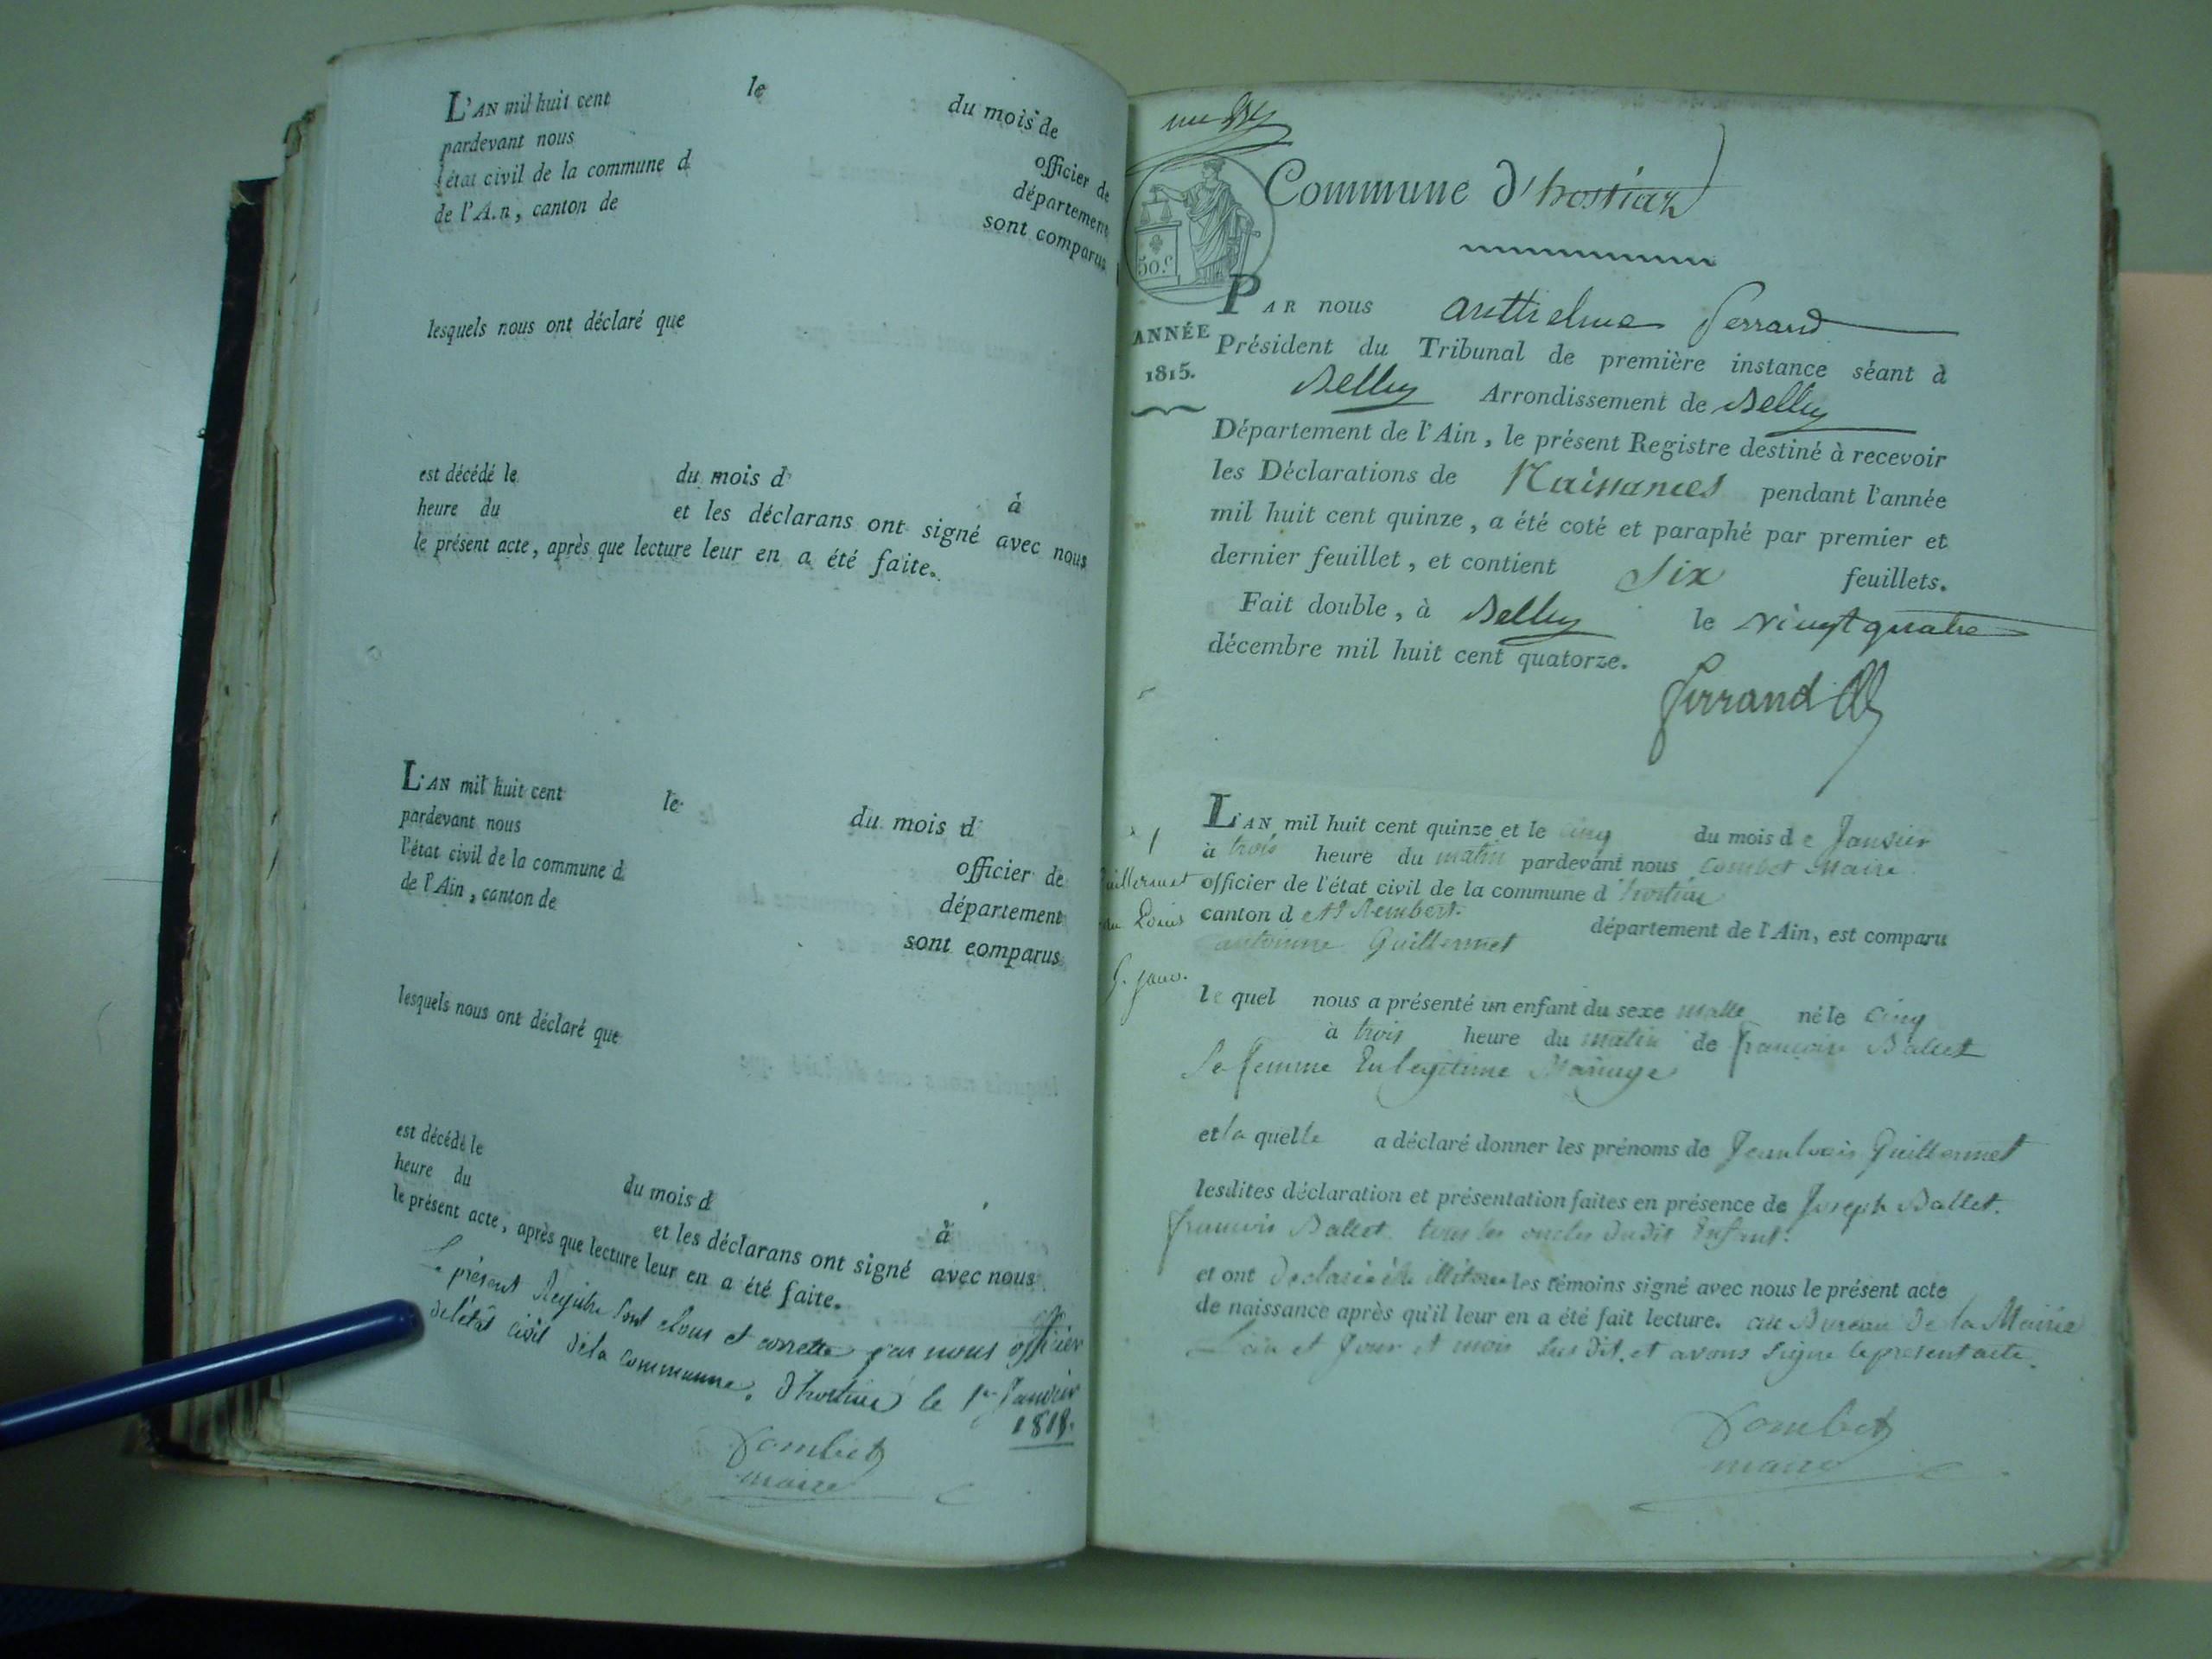 L'AN mil huit cent le du mois de
pardevant nous officier de
l'état civil de la commune d département
de l'A.n, canton de sont comparus
lesquels nous ont déclaré que
est décédé le du mois d à
heure du et les déclarans ont signé avec nous
le présent acte, après que lecture leur en a été faite.
L'AN mil huit cent le du mois d
pardevant nous officier de
l'état civil de la commune d département
de l'Ain, canton de sont comparus
lesquels nous ont déclaré que
est décédé le du mois d à
heure du et les déclarans ont signé avec nous
le présent acte, après que lecture leur en a été faite.
Le présent Registre clous et par nous officier
de l'état civil de la commune d'hostiaz le 1er Janvier
1818.
Combet
maire
Commune d'hostiaz
50.c
PAR nous Anthelme Ferrand
ANNÉE
1815.
Président du Tribunal de première instance séant à
Belley Arrondissement de Belley
Département de l'Ain, le présent Registre destiné à recevoir
les Déclarations de Naissances pendant l'année
mil huit cent quinze, a été coté et paraphé par premier et
dernier feuillet, et contient Six feuillets.
Fait double, à Belley le vingt quatre
décembre mil huit cent quatorze.
Ferrand
1
Guillermet
Louis
5. janv.
L'AN mil huit cent quinze et le cinq du mois de Janvier
à trois heure du matin pardevant nous Combet Maire
officier de l'état civil de la commune d'hostiaz
canton de St Rembert. département de l'Ain, est comparu
antoinne Guillermet
le quel nous a présenté un enfant du sexe malle né le cinq
à trois heure du matin de françoise Ballet
Sa femme En legitime Mariage
et la quelle a déclaré donner les prénoms de Jean louis Guillermet
lesdites déclaration et présentation faites en présence de Joseph Ballet.
francois Ballet tous les oncles dudit Enfant.
et ont declaré les témoins signé avec nous le présent acte
de naissance après qu'il leur en a été fait lecture. au Bureau de la Mairie
L'an et Jour et mois sus dit. et avons signe le present acte.
Combet
maire